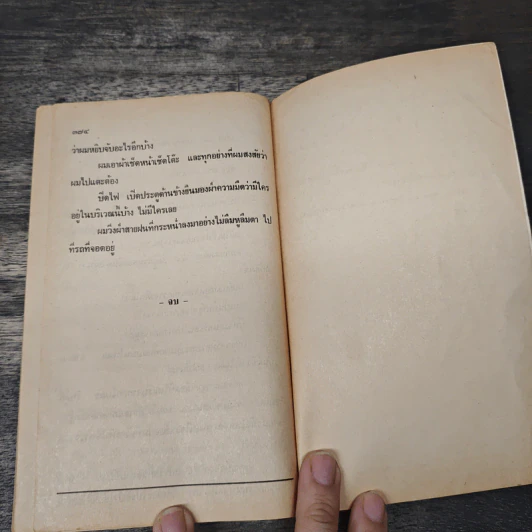 ๓๙๔
ว่าผมหยิบจับอะไรอีกบ้าง
ผมเอาผ้าเช็ดหน้าเช็ดโต๊ะ และทุกอย่างที่ผมสงสัยว่า
ผมไปแตะต้อง
ปิดไฟ เปิดประตูด้านข้างยืนมองฝ่าความมืดว่ามีใคร
อยู่ในบริเวณนี้บ้าง ไม่มีใครเลย
ผมวิ่งฝ่าสายฝนที่กระหน่ำลงมาอย่างไม่ลืมหูลืมตา ไป
ที่รถที่จอดอยู่
– จบ –